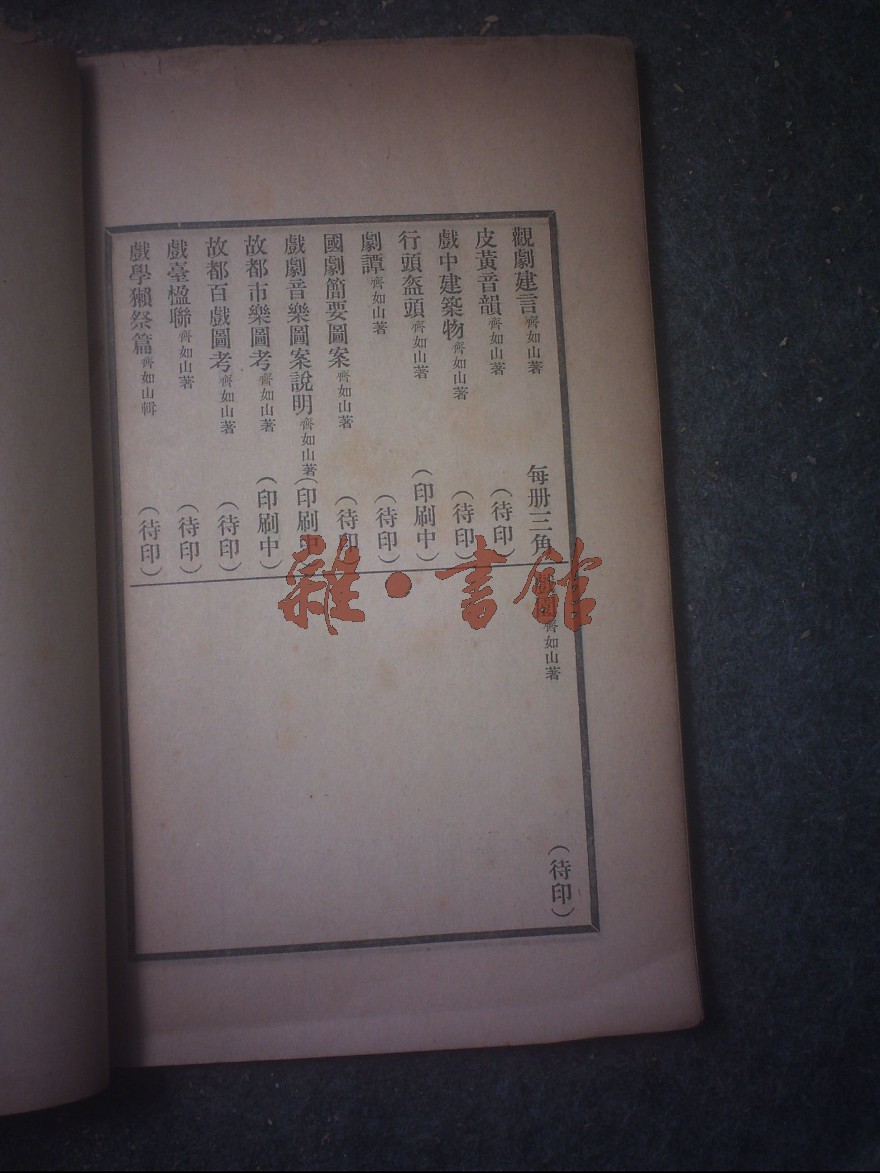 觀劇建言 齊如山著 每册三角
皮黃音韻 齊如山著 (待印)
戲中建築物 齊如山著 (待印)
行頭盔頭 齊如山著 (印刷中)
劇譚 齊如山著 (待印)
國劇簡要圖案 齊如山著 (待印)
戲劇音樂圖案說明 齊如山著 (印刷中)
故都市樂圖考 齊如山著 (印刷中)
故都百戲圖考 齊如山著 (待印)
戲臺楹聯 齊如山著 (待印)
戲學獺祭篇 齊如山輯 (待印)
齊如山著 (待印)
雜·書館